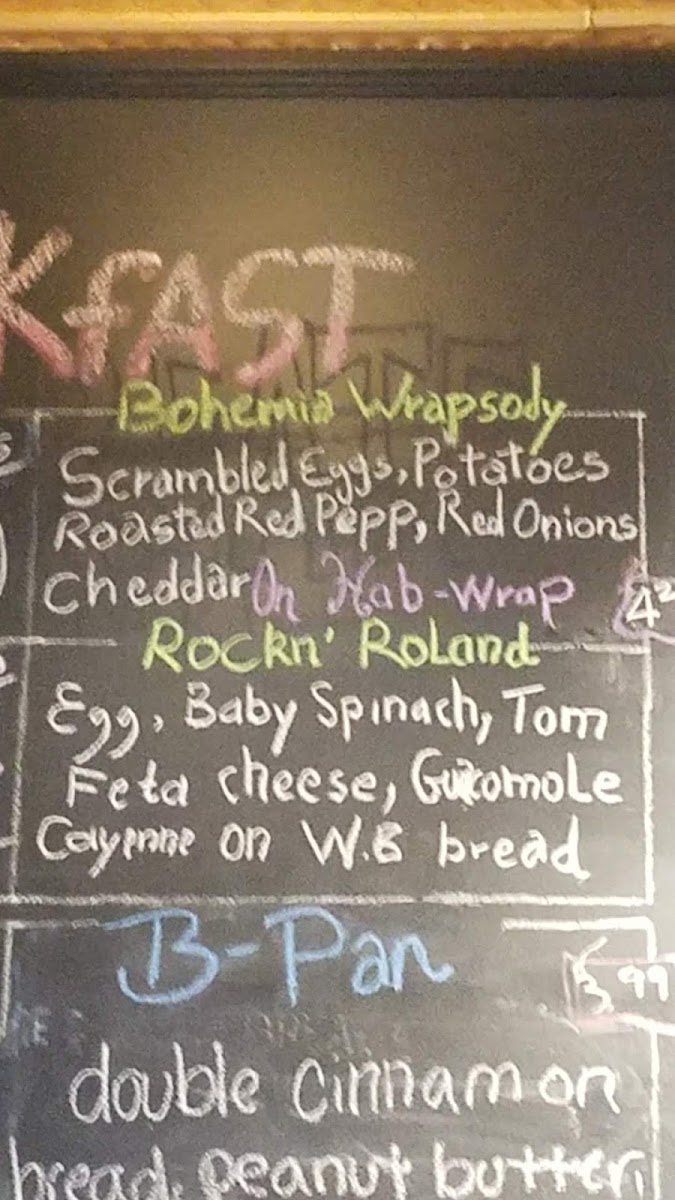 KfAST
Bohemia Wrapsody
Scrambled Eggs, Potatoes
Roasted Red Pepp, Red Onions
Cheddar On Hab-Wrap
Rockn' Roland
Egg, Baby Spinach, Tom
Feta cheese, Guacomole
Cayenne on W.B bread
B-Pan 3.99
double cinnamon
bread, peanut butter,